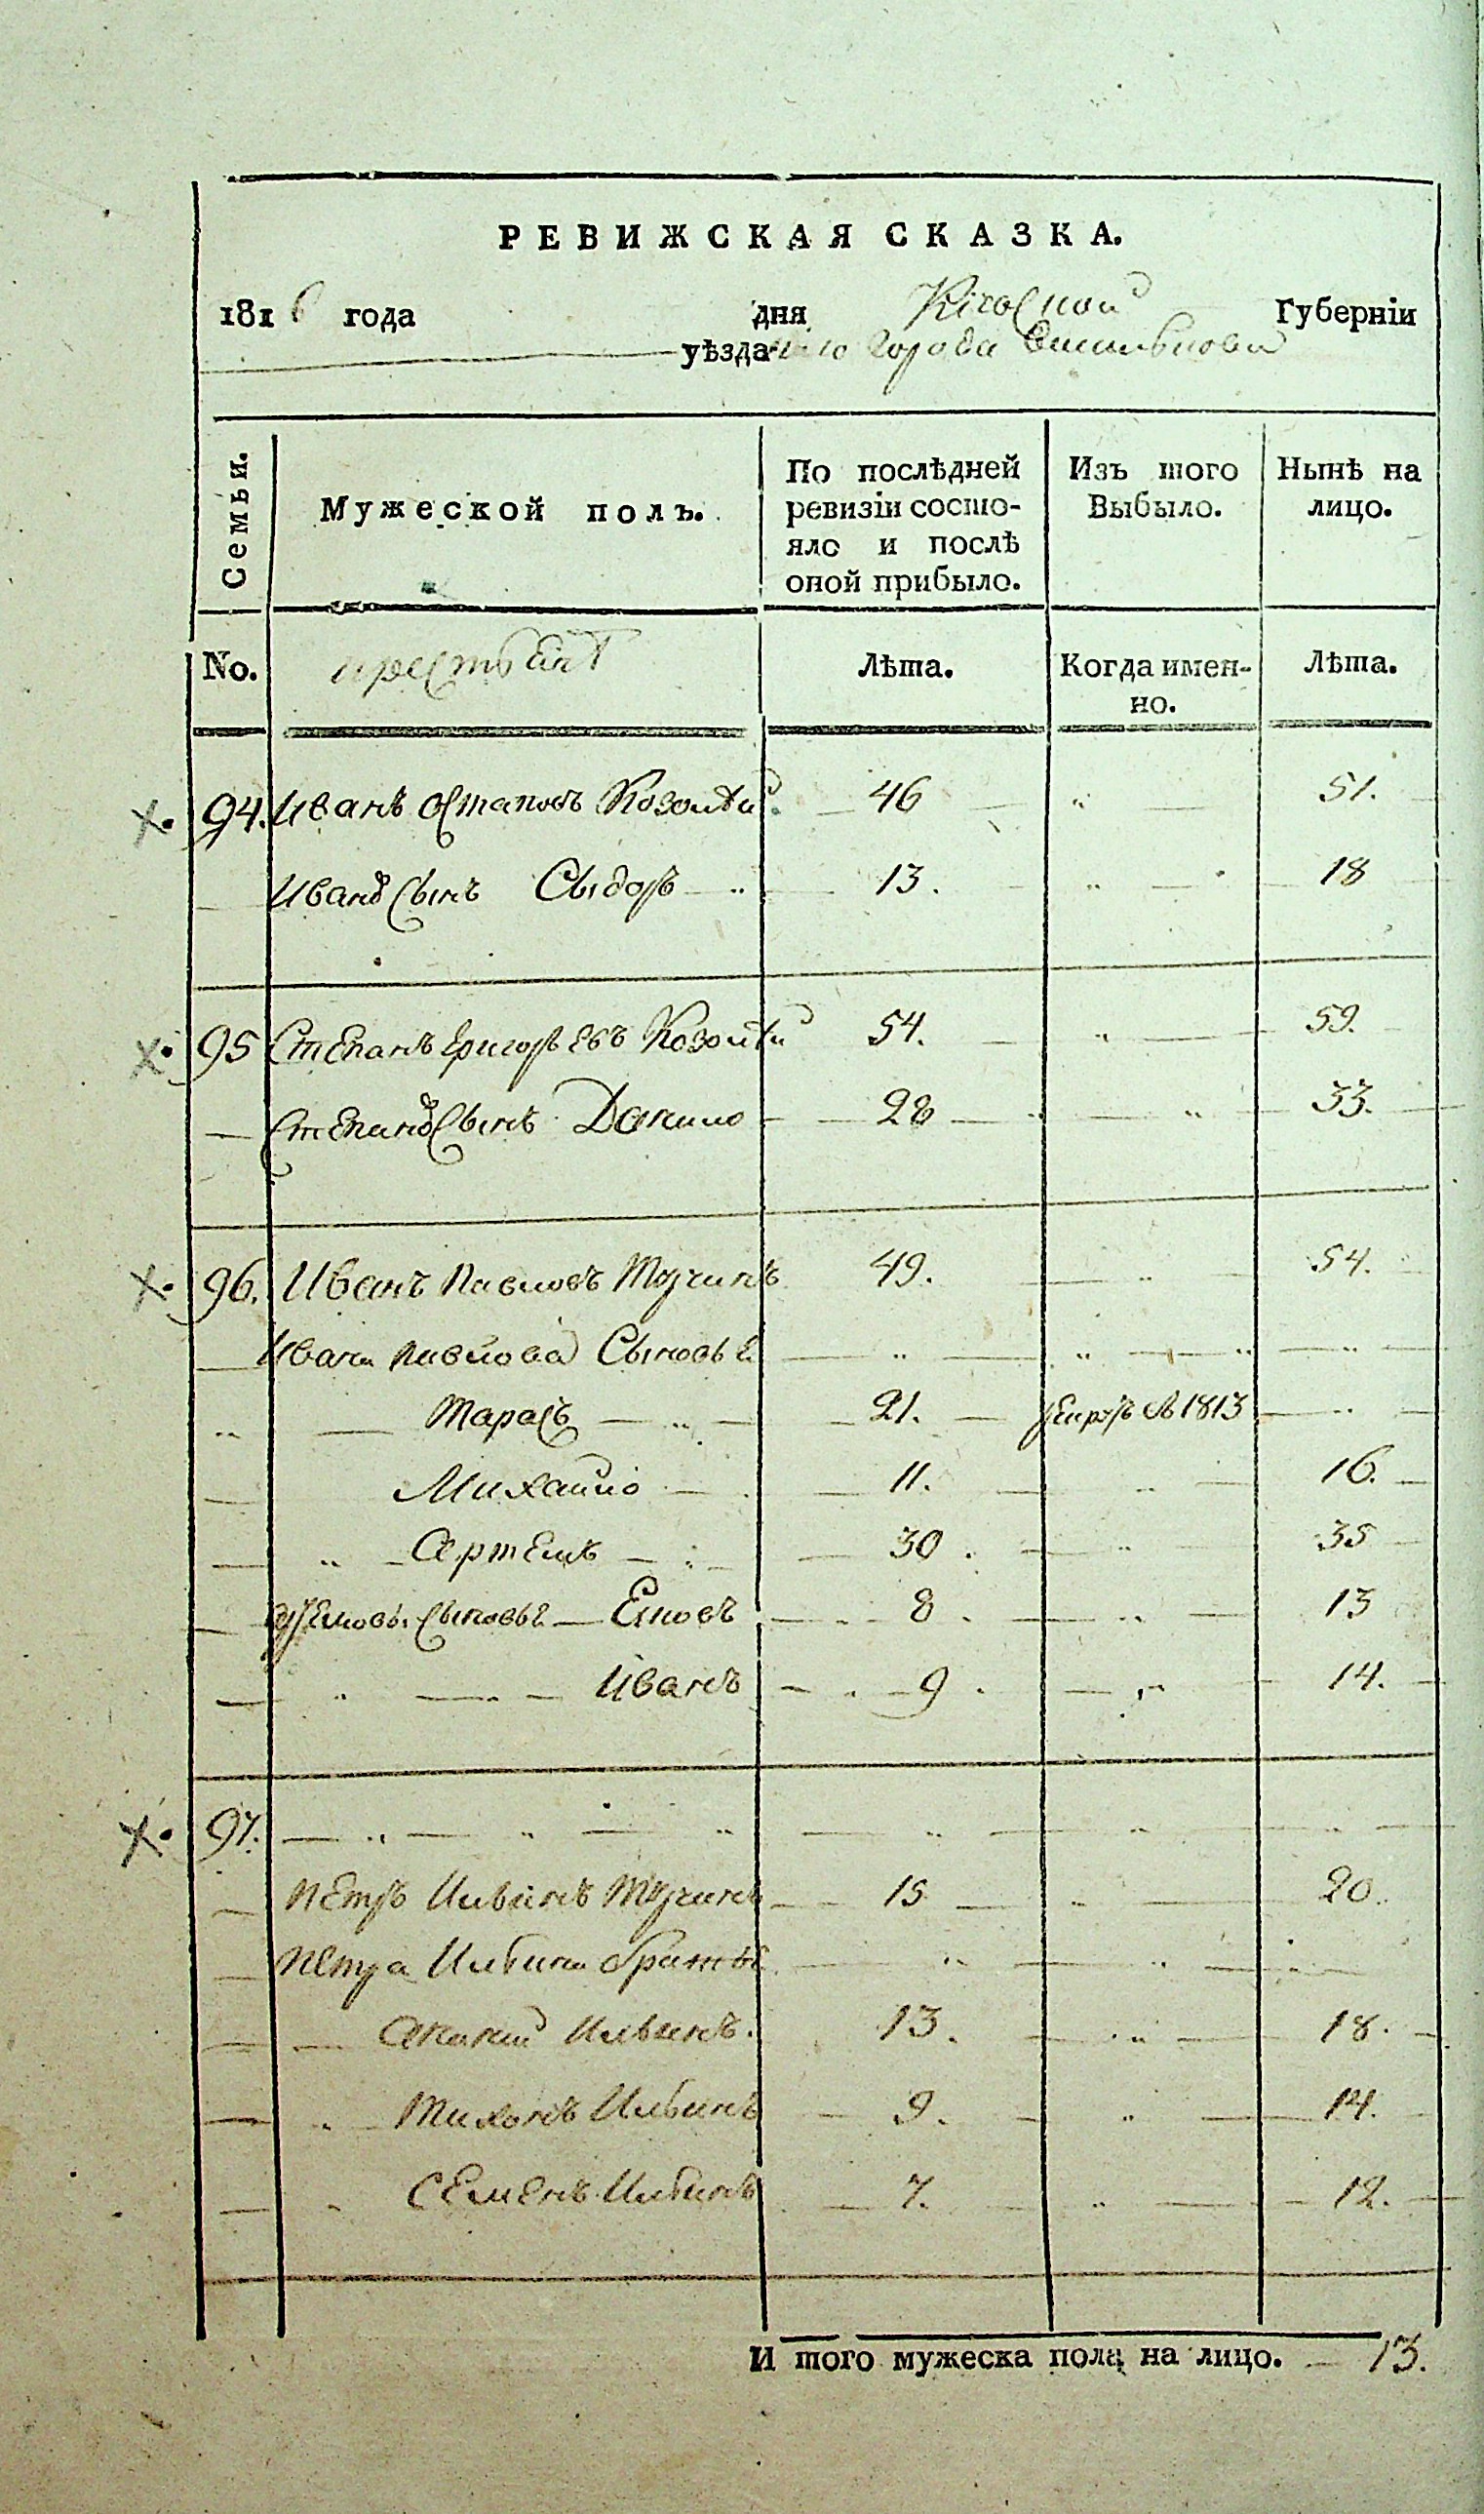 РЕВИЖСКАЯ СКАЗКА.
1816 года дня Губерніи
уѣзда города
Семьи. Мужеской полъ. По послѣдней ревизіи состо-яло и послѣ оной прибыло. Изъ того Выбыло. Нынѣ на лицо.
No. Лѣта. Когда имен-но. Лѣта.
94. Иванъ Остаповъ 46 51.
Ивана Сынъ Сыдоръ 13. 18
95 Степанъ Григорьевъ 54. 59.
Степана Сынъ Данило 28 33.
96. Иванъ Павловъ Тучинъ 49. 54.
Ивана Павлова Сыновья
Тарасъ 21. 1813
Михайло 11. 16.
Артемъ 30. 35
Сыновья 8. 13
Иванъ 9. 14.
97.
Петръ Ильинъ Тучинъ 15 20.
Петра Ильина братья
Ильинъ. 13. 18.
Тихонъ Ильинъ 9. 14.
Семенъ Ильинъ 7. 12.
И того мужеска пола на лицо. 13.